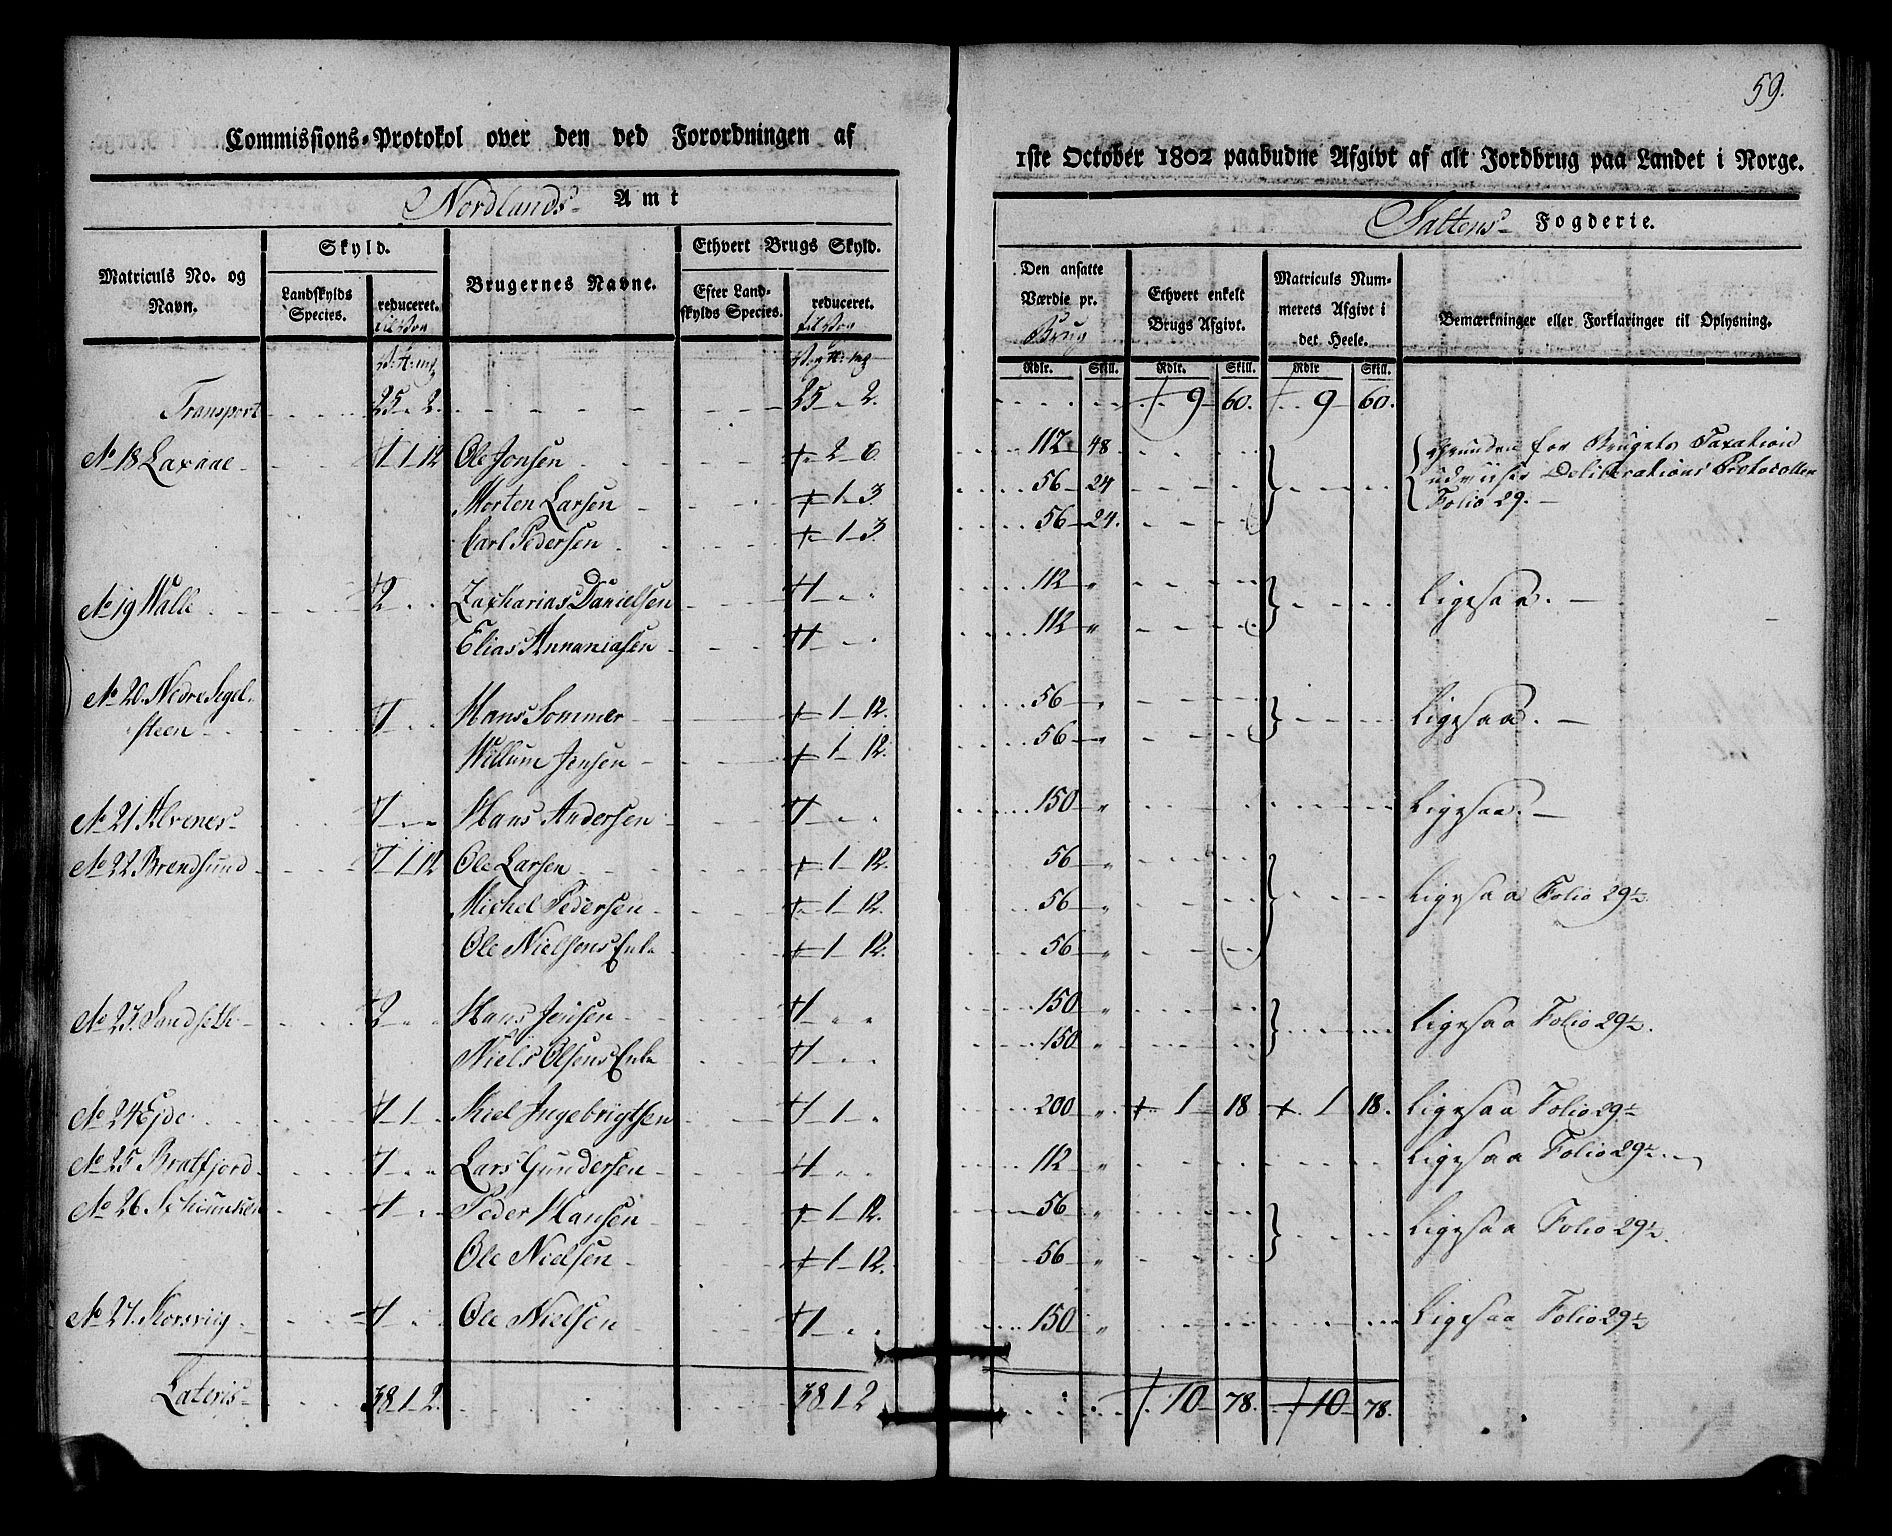 59.
Commissions-Protokol over den ved Forordningen af
1ste October 1802 paabudne Afgivt af alt Jordbrug paa Landet i Norge.
Nordlands Amt
Saltens Fogderie.
Matriculs No. og Navn.
Skyld.
Landskylds Species.
reduceret.
Brugernes Navne.
Ethvert Brugs Skyld.
Efter Landskylds Species.
reduceret.
Den ansatte Værdie pr. Brug
Ethvert enkelt Brugs Afgivt.
Matriculs Nummerets Afgivt i det Heele.
Bemærkninger eller Forklaringer til Oplysning.
Rdlr. Skill. Rdlr. Skill. Rdlr Skill.
Transport 25 " 2. 25 " 2. 9 60. 9 60.
No 18 Laxaae 1 1 12 Ole Jonsen 2 6. 112 48 Grunden for Brugets Taxation
Morten Larsen 1 3. 56 24 udviiser Deliberations Protocollen
Carl Pedersen 1 3. 56 24. Folio 29.
No 19 Walle 2 " " Zacharias Danielsen 1 " " 112 " Ligesaa.
Elias Annaniasen 1 " " 112 "
No 20. Nedre Segel-
steen 1 " " Hans Sommer 1 12. 56 " Ligesaa.
Willum Jensen 1 12. 56 "
No 21 Alvenes 1 " " Hans Andersen 1 " " 150 " Ligesaa.
No 22 Brendsund 1 1 12 Ole Larsen 1 12. 56 "
Michel Pedersen 1 12. 56 " Ligesaa Folio 29½.
Ole Nielsens Enke 1 12. 56 "
No 23. Sandseth 2 " " Hans Jensen 1 " " 150 " Ligesaa Folio 29½.
Niels Olsens Enke 1 " " 150 "
No 24 Ejde 1 1 " Kiel Ingebrigtsen 1 1 " 200 " 1 18 1 18. Ligesaa Folio 29½
No 25 Bratfjord 1 " " Lars Gundersen 1 " " 112 " Ligesaa Folio 29½.
No 26 1 " " Peder Hansen 1 12. 56 " Ligesaa Folio 29½.
Ole Nielsen 1 12. 56 "
No 27. Korsviig 1 " " Ole Nielsen 1 " " 150 " Ligesaa Folio 29½
Lateris 38 1 2. 38 1 2 10 78. 10 78.